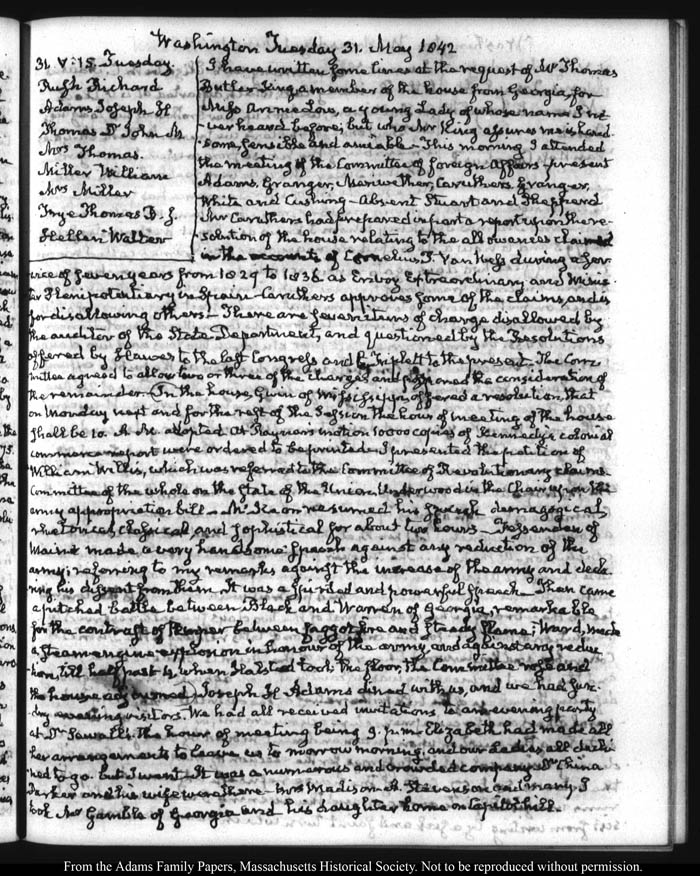 Washington Tuesday 31. May 1842
31. V:15. Tuesday.
Rush Richard
Adams Joseph H
Thomas Dr John M
Mrs Thomas.
Miller William
Mrs Miller
Frye Thomas B. J.
Hellen Walter
I have written some lines at the request of Mr Thomas
Butler King a member of the house from Georgia, for
Miss Annie Lou, a young Lady of whose name I ne-
ver heard before; but who Mr King assures me is hand-
some, sensible and amiable— This morning I attended
the meeting of the Committee of foreign Affairs— present
Adams, Granger, Meriwether, Caruthers, Granger,
White and Cushing— Absent Stuart and Shepperd
Mr Caruthers had prepared in part a report upon the re-
solution of the house relating to the allowances claimed
in the accounts of Cornelius P. Van Ness during a ser-
vice of seven years from 1829 to 1836 as Envoy Extraordinary and Minis-
ter Plenipotentiary in Spain— Caruthers approves some of the claims, and is
for disallowing others— There are seven items of charge disallowed by
the auditor of the State Department, and questioned by the Resolutions
offered by to the last Congress and by Triplett to the present. The Com-
mittee agreed to allow two or three of the charges and postponed the consideration of
the remainder. In the house, Gwin of Mississippi offered a resolution, that
on Monday next and for the rest of the Session the hour of meeting of the house
shall be 10. A.M. adopted. At Rayner's motion 10000 copies of Kennedy's colonial
commerce report were ordered to be printed— I presented the petition of
William Willis, which was referred to the Committee of Revolutionary claims.
Committee of the whole on the state of the Union. Underwood in the Chair upon the
army appropriation bill— Mr resumed his speech demagogical,
rhetorical, classical, and sophistical for about two hours— Fessenden of
Maine made a very handsome speech against any reduction of the
army; referring to my remarks against the increase of the army and decla-
ring his dissent from them. It was a spirited and powerful speech— Then came
a pitched battle between Black and Warren of Georgia, remarkable
for the contrast of temper between faggot fire and steady flame; Ward, made
a steam engine explosion in honour of the army, and against any reduc-
tion, till half past 4, when Halsted took the floor, the Committee rose and
the house adjourned. Joseph H Adams dined with us, and we had sun-
dry evening visitors. We had all received invitations to an evening party
at Dr Sewall's. The hour of meeting being 9. p.m. Elizabeth had made all
her arrangements to leave us to morrow morning, and our Ladies all decli-
ned to go. but I went. It was a numerous and crowded company. Dr China
Parker and his wife were there— Mrs Madison. A. Stevenson and many. I
took Mr Gamble of Georgia and his daughter home on Capitol hill.
From the Adams Family Papers, Massachusetts Historical Society. Not to be reproduced without permission.